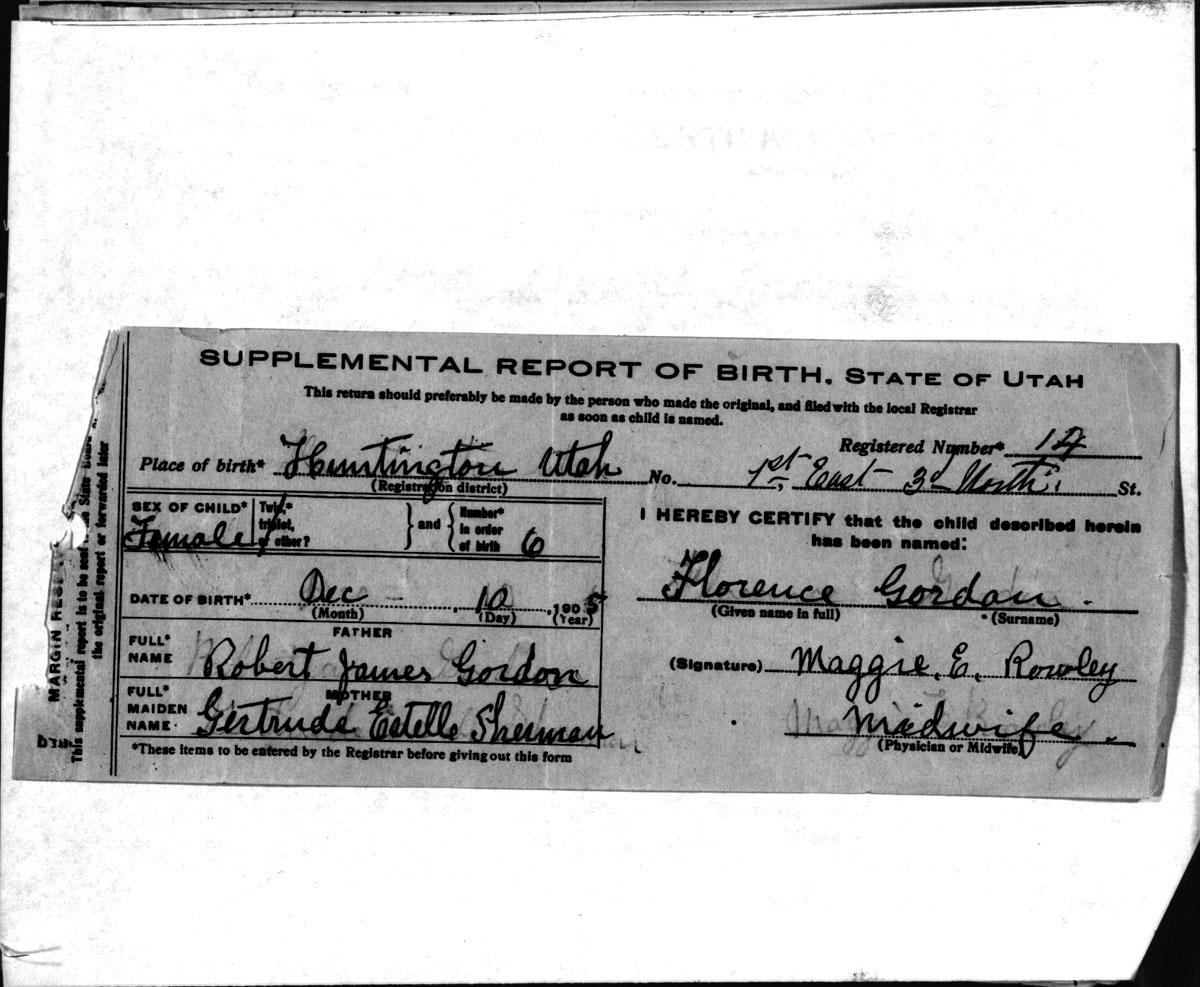 SUPPLEMENTAL REPORT OF BIRTH. STATE OF UTAH
This return should preferably be made by the person who made the original, and filed with the local Registrar
as soon as child is named.
Registered Number*
Place of birth* Huntington Utah No. 1st East 3d North St.
(Registration district)
SEX OF CHILD* Female
Twin,* triplet, or other?
and
Number* in order of birth 6
DATE OF BIRTH* Dec 10, 1905
(Month) (Day) (Year)
FATHER
FULL* NAME Robert James Gordon
MOTHER
FULL* MAIDEN NAME Gertrude Estelle Sherman
*These items to be entered by the Registrar before giving out this form
I HEREBY CERTIFY that the child described herein
has been named:
Florence Gordon.
(Given name in full) (Surname)
(Signature) Maggie. E. Rowley
Midwife.
(Physician or Midwife)
MARGIN
This supplemental report is to be sent State
the original report or forwarded later